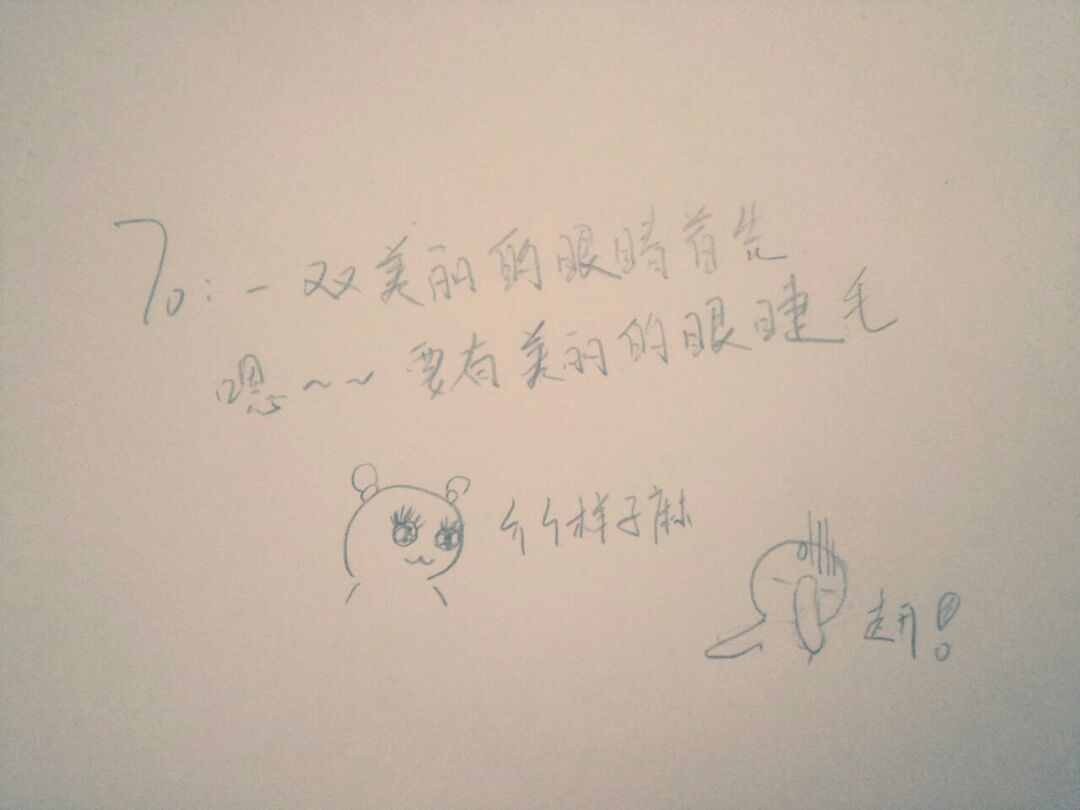 To:一双美丽的眼睛首先
嗯~~要有美丽的眼睫毛
介个样子麻
走开!